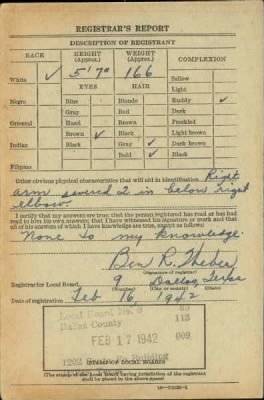 REGISTRAR'S REPORT
DESCRIPTION OF REGISTRANT
RACE HEIGHT (Approx.) WEIGHT (Approx.) COMPLEXION
White ✓ 5'7" 166 Sallow
EYES HAIR Light
Negro Blue Blonde Ruddy ✓
Gray Red Dark
Oriental Hazel Brown Freckled
Brown ✓ Black Light brown
Indian Black Gray ✓ Dark brown
Bald ✓ Black
Filipino
Other obvious physical characteristics that will aid in identification Right
arm severed 2 in below right
elbow.
I certify that my answers are true; that the person registered has read or has had
read to him his own answers; that I have witnessed his signature or mark and that
all of his answers of which I have knowledge are true, except as follows:
None to my knowledge.
Ben R.
(Signature of registrar)
Registrar for Local Board 9 Dallas Texas
(Number) (City or county) (State)
Date of registration Feb 16, 1942
Local Board No. 9 65
Dallas County 113
FEB 17 1942 009
1202 Building
(STAMP OF LOCAL BOARD)
(The stamp of the Local Board having jurisdiction of the registrant
shall be placed in the above space.)